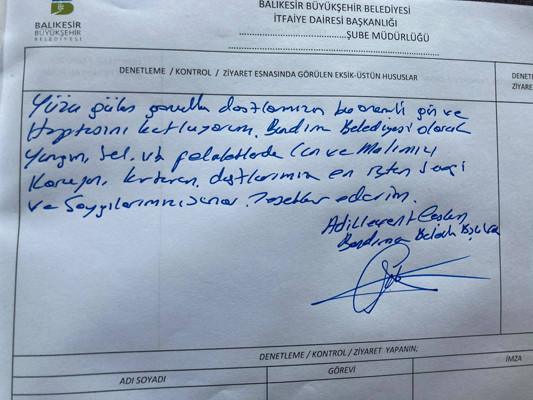 BALIKESİR
BÜYÜKŞEHİR
BELEDİYESİ
BALIKESİR BÜYÜKŞEHİR BELEDİYESİ
İTFAİYE DAİRESİ BAŞKANLIĞI
ŞUBE MÜDÜRLÜĞÜ
DENETLEME / KONTROL / ZİYARET ESNASINDA GÖRÜLEN EKSİK-ÜSTÜN HUSUSLAR
DENETL
ZİYARE
Yüzü gülen gönüllü dostlarımızın bu önemli gün ve
Haftasını kutluyorum. Bandırma Belediyesi olarak
Yangın, Sel, vb felaketlerde Can ve Malımızı
Koruyan, kurtaran, dostlarımıza en içten Sevgi
ve Saygılarımızı sunar. Teşekkür ederim.
Bandırma
DENETLEME / KONTROL / ZİYARET YAPANIN;
ADI SOYADI
GÖREVİ
İMZA